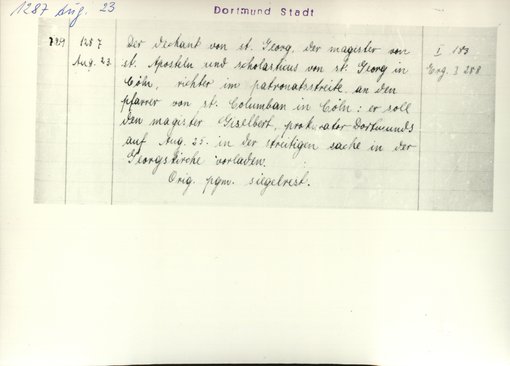 1287 Aug. 23
Dortmund Stadt
789 1287 Der dechant von st. Georg, der magister von I 183
Aug. 23. st. Aposteln und scholasticus von st. Georg in Erg. I 288
Cöln, richter im patronatsstreite, an den
pfarrer von st. Columban in Cöln: er soll
den magister Giselbert, prokurator Dortmunds
auf Aug. 25. in der streitigen sache in der
Georgskirche vorladen.
Orig. pgm. siegelrest.